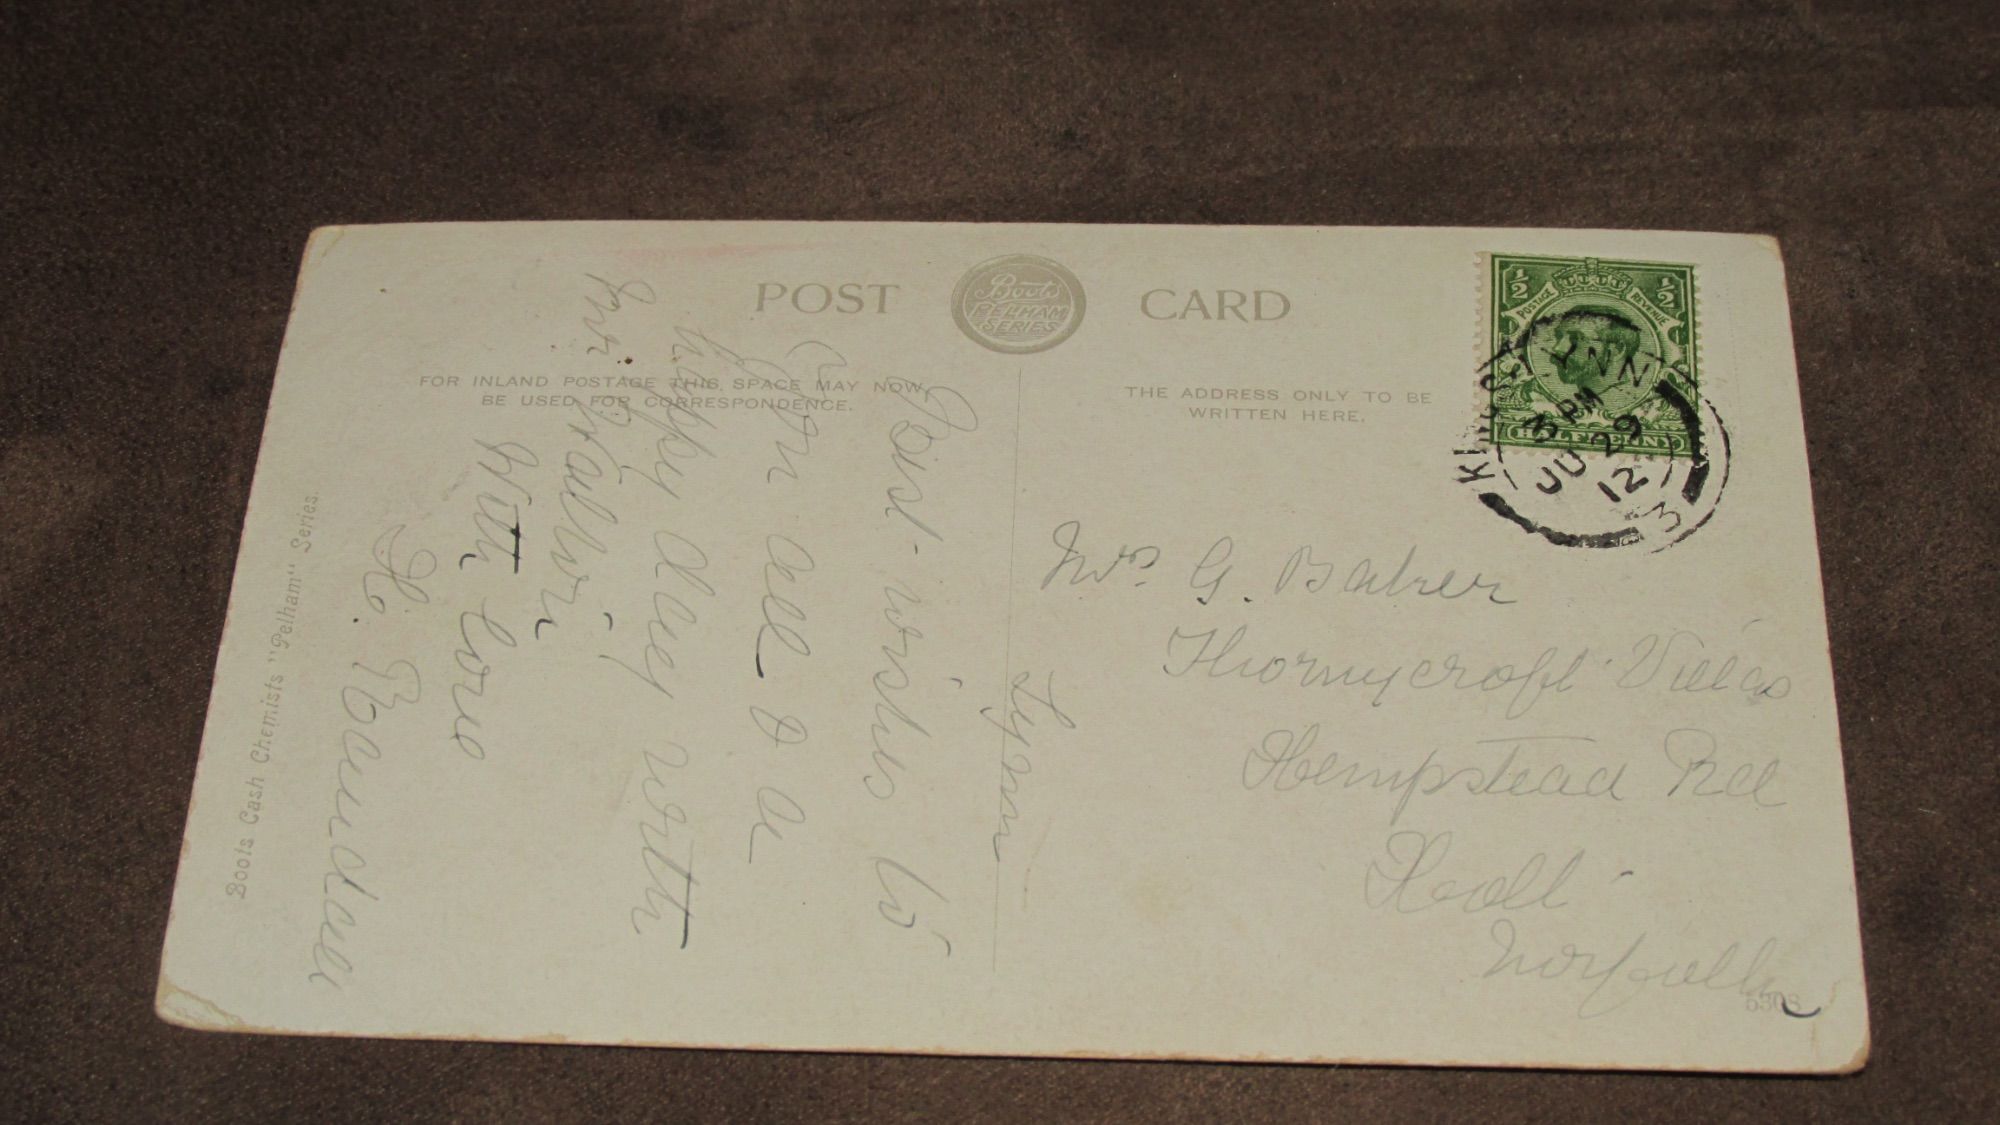 POST CARD
Boots
PELHAM
SERIES
FOR INLAND POSTAGE THIS SPACE MAY NOW
BE USED FOR CORRESPONDENCE.
THE ADDRESS ONLY TO BE
WRITTEN HERE.
½ ½
POSTAGE REVENUE
HALFPENNY
KING'S LYNN
3 PM
JU 29
12
3
Lynn
Best wishes to
you all & a
happy day with
Mr
With love
H. Roundall
Mrs G. Baker
Thornycroft Villas
Hempstead Rd
Holt
Norfolk
5303
Boots Cash Chemists "Pelham" Series.